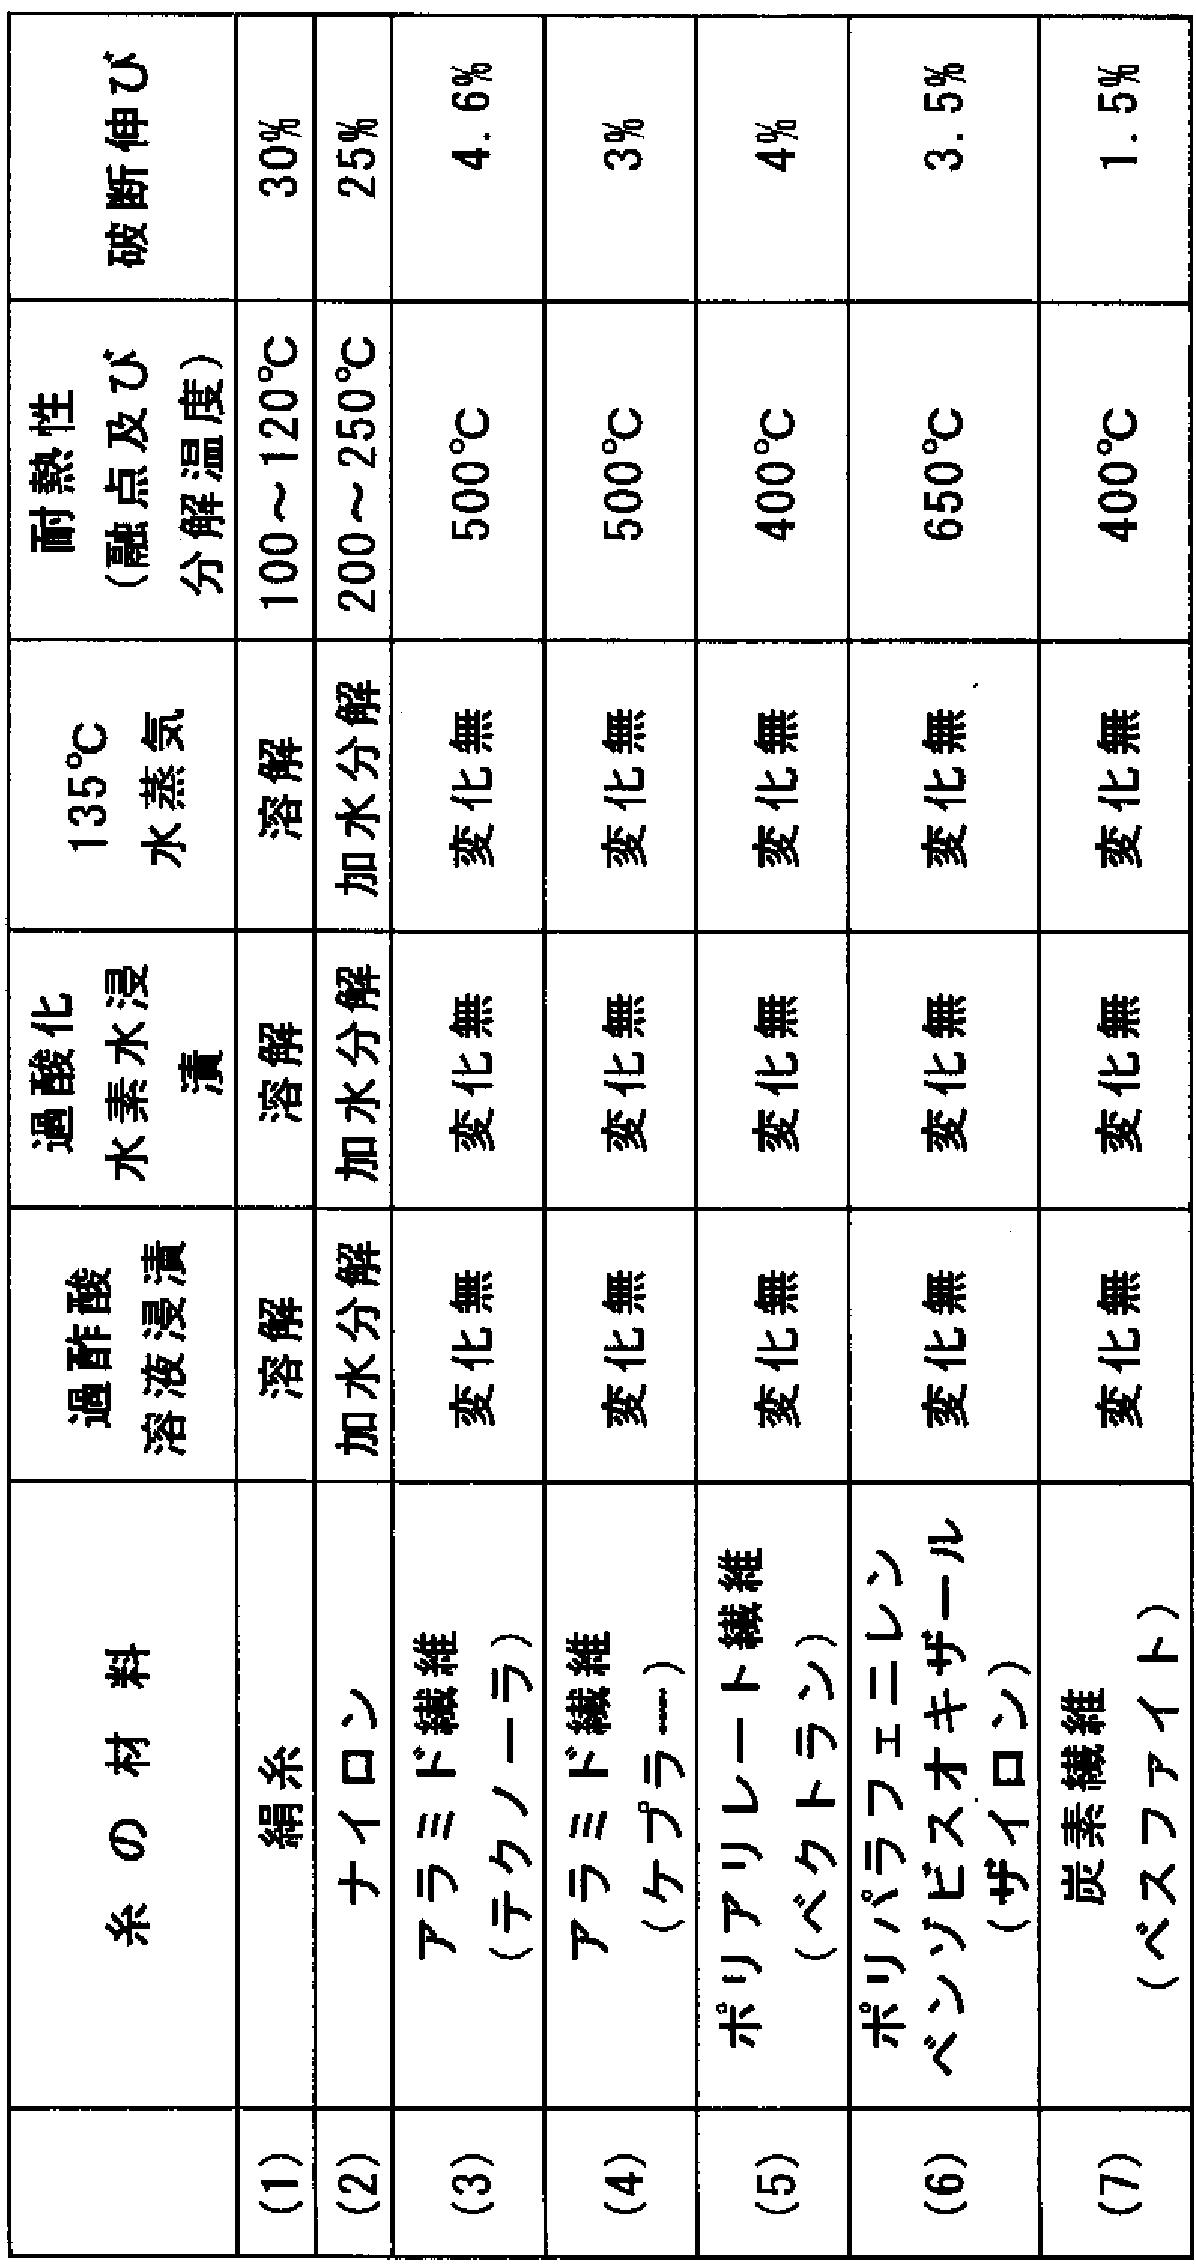 糸の材料
過酢酸
溶液浸漬
過酸化
水素水浸
漬
135℃
水蒸気
耐熱性
(融点及び
分解温度)
破断伸び
(1)
絹糸
溶解
溶解
溶解
100～120℃
30%
(2)
ナイロン
加水分解
加水分解
加水分解
200～250℃
25%
(3)
アラミド繊維
(テクノーラ)
変化無
変化無
変化無
500℃
4.6%
(4)
アラミド繊維
(ケプラー)
変化無
変化無
変化無
500℃
3%
(5)
ポリアリレート繊維
(ベクトラン)
変化無
変化無
変化無
400℃
4%
(6)
ポリパラフェニレン
ベンゾビスオキザール
(ザイロン)
変化無
変化無
変化無
650℃
3.5%
(7)
炭素繊維
(ベスファイト)
変化無
変化無
変化無
400℃
1.5%